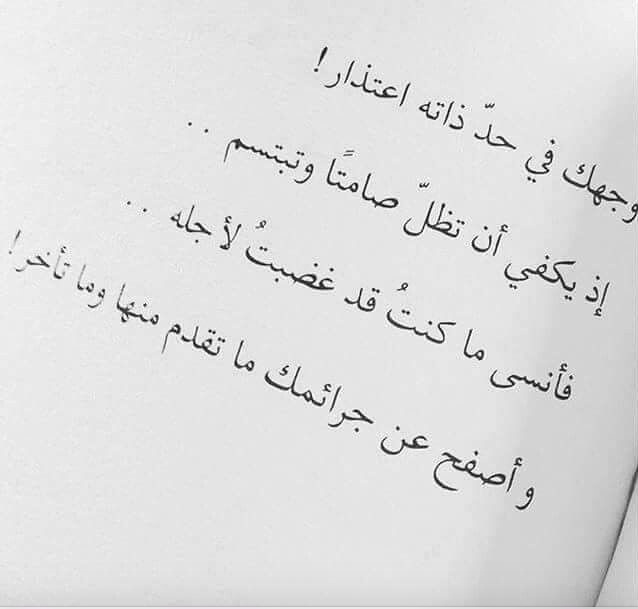 وجهك في حدّ ذاته اعتذار!
إذ يكفي أن تظلّ صامتًا وتبتسم . .
فأنسى ما كنتُ قد غضبتُ لأجله . .
وأصفح عن جرائمك ما تقدم منها وما تأخر!